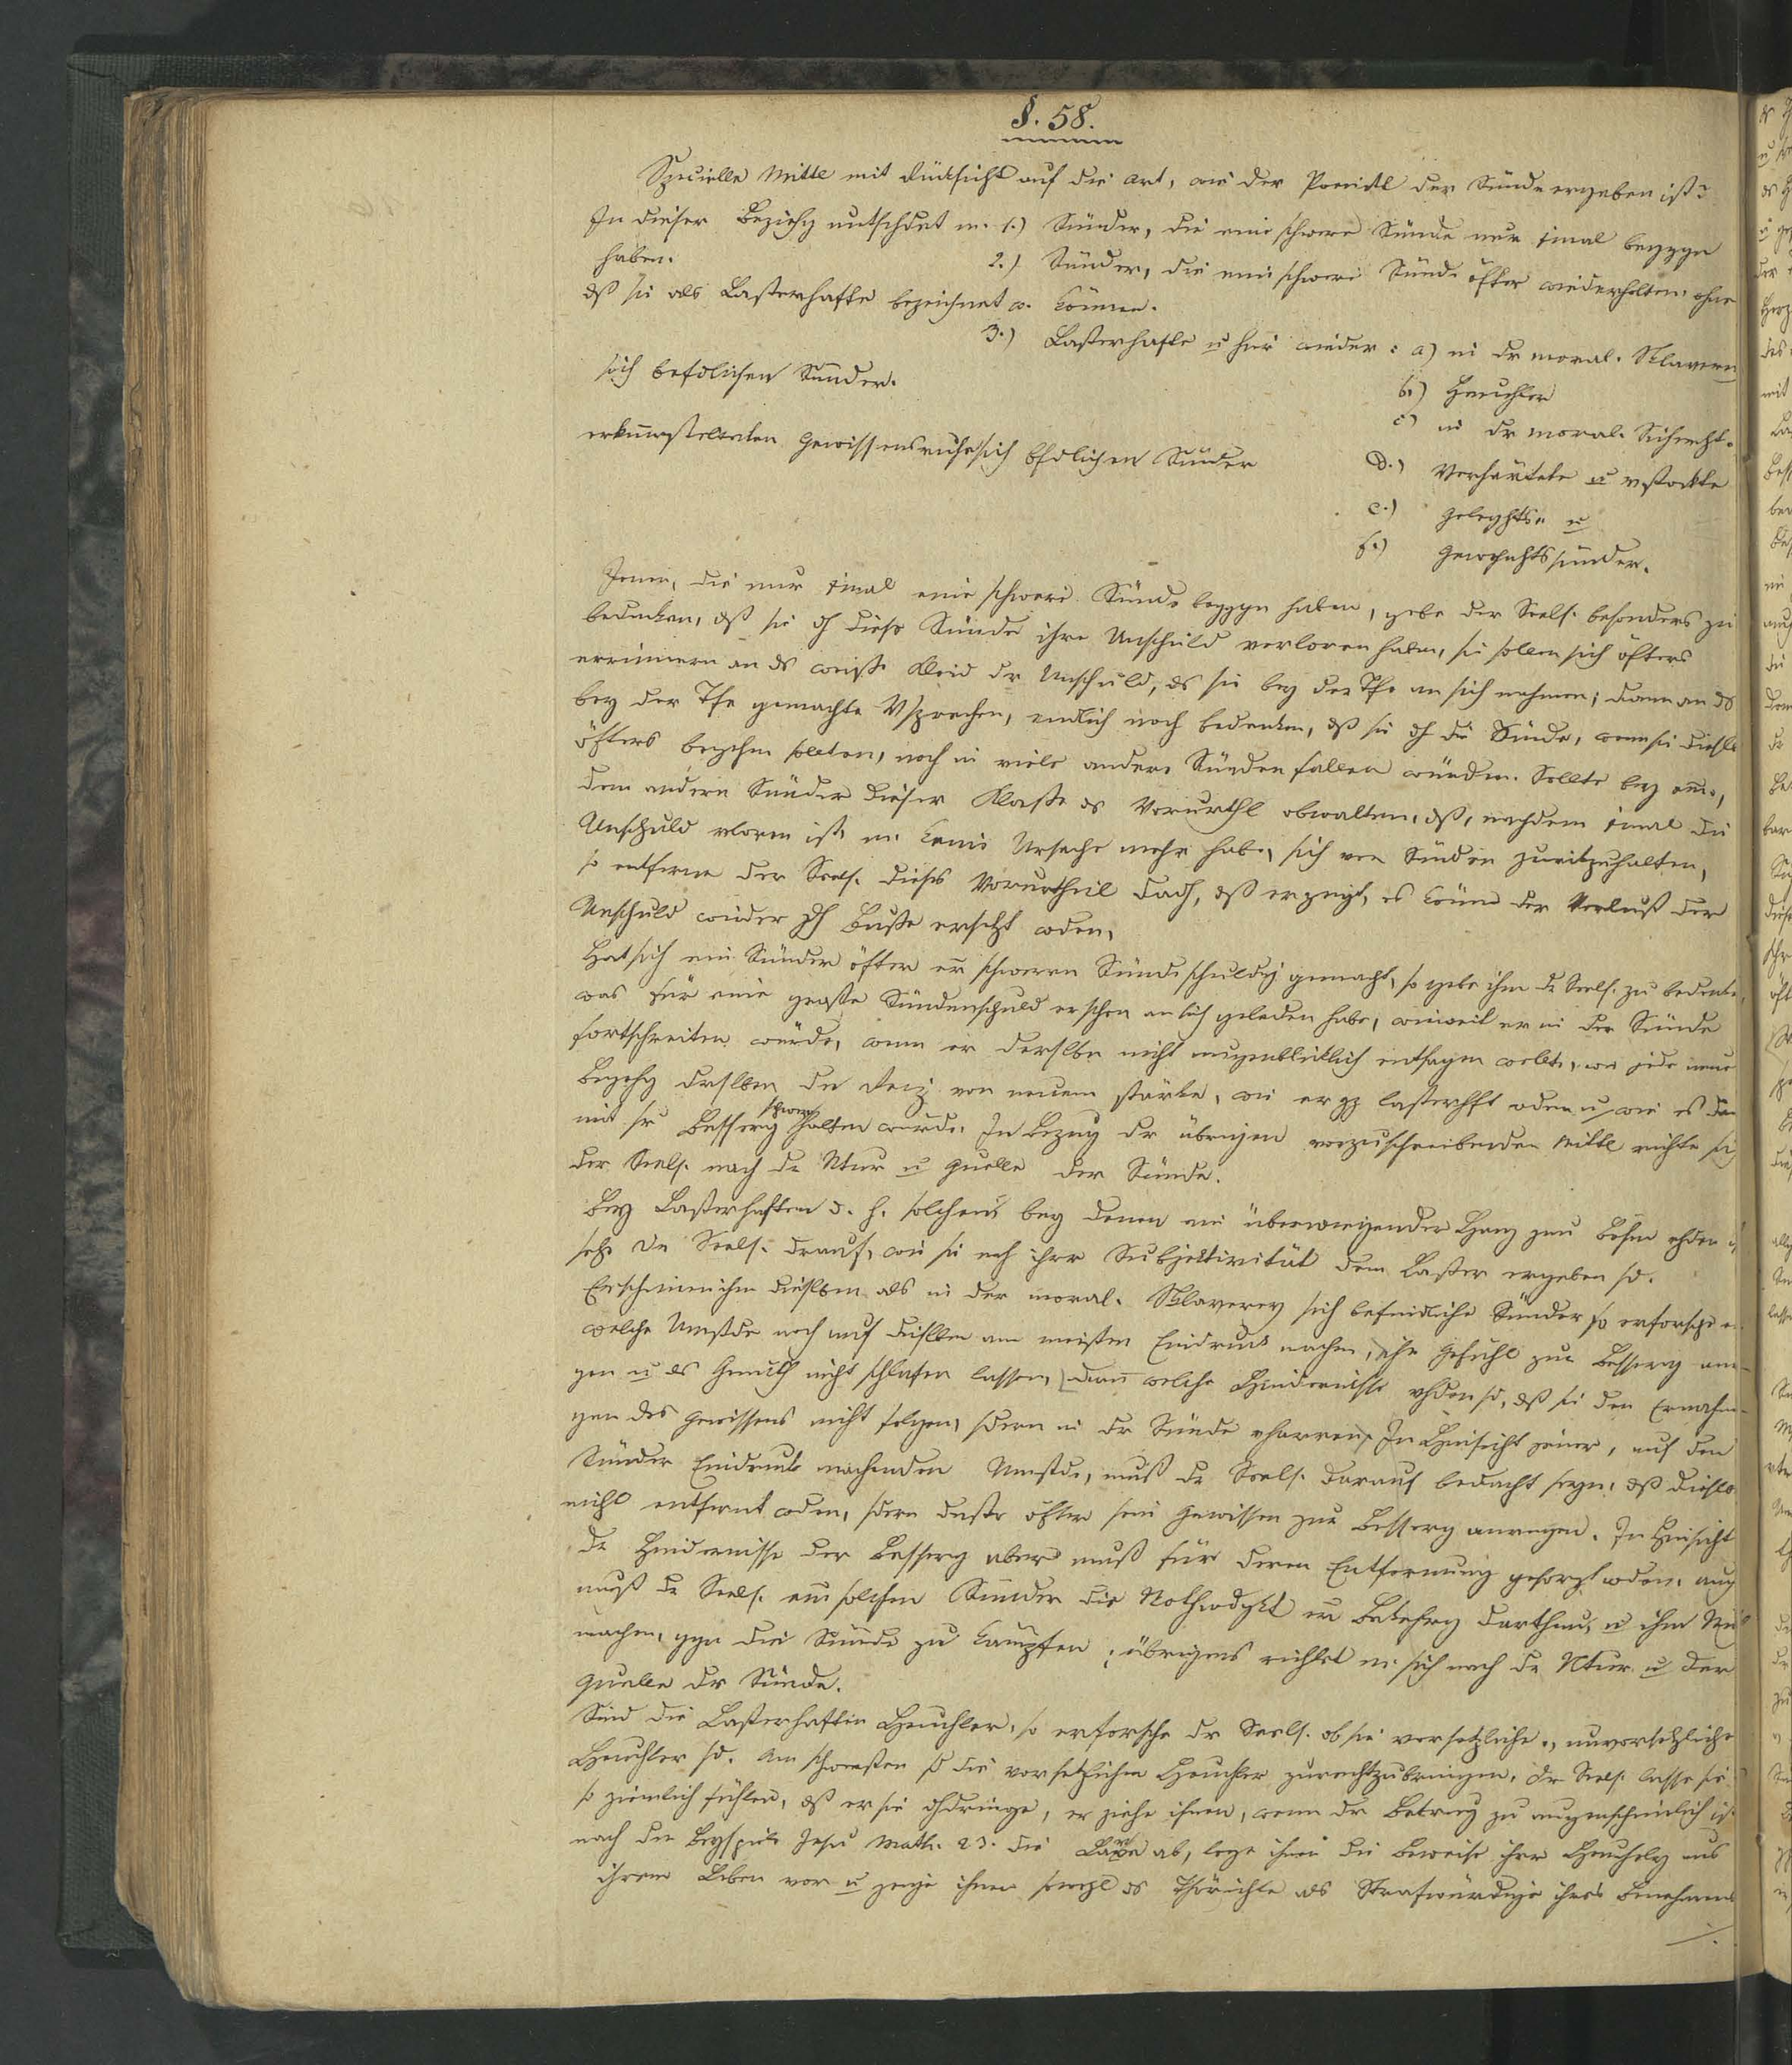 §. 58.
Specielle Mittel mit Rücksicht auf die Art, wie der Poenitl der Sünde ergeben ist?
In dieser Beziehg untschdet m. 1.) Sünder, die eine schwere Sünde nur 1mal begggn
haben. 2.) Sünder, die eine schwere Sünde öfter wiederholten, ohne
dß sie als Lasterhafte bezeichnet w. können.
3.) Lasterhafte u hier wieder: a) in dr moral. Sklaverey
sich befdlichen Sünder.
b.) Heuchler
c) in dr moral. Sicherht.
erkünstelten Gewissensruhe sich bfdlichen Sünder
d.) Verhärtete u vstockte
e.) Geleghts- u
f.) Gewohnhtssünder.
Jenen, die nur 1mal eine schwere Sünde beggyn haben, gebe der Seels. besonders zu
bedenken, dß sie dh diese Sünde ihre Unschuld verloren haben, sie sollen sich öfters
erinnern an ds weiße Kleid dr Unschuld, ds sie bey der Tfe an sich nahmen; dann an ds
bey der Tfe gemachte Vsprechen, endlich noch bedenken, dß sie dh die Sünde, wenn sie diese
öfters begehen sollten, noch in viele andere Sünden fallen würden. Sollte bey
dem andern Sünder dieser Klasse ds Vorurthl obwalten, dß, nachdem 1mal die
Unschuld vloren ist, m. keine Ursache mehr habe, sich von Sünden zurükzuhalten,
so entferne der Seels. dieses Vorurtheil dadh, dß er zeigt, es könne der Verlust der
Unschuld wieder dh Buße ersetzt wden.
Hat sich ein Sünder öfter er schweren Sünde schuldig gemacht, so gebe ihm dr Seels. zu bedenken,
was für eine große Sündenschuld er schon an sich geladen habe, wieweit er in der Sünde
fortschreiten würde, wenn er derslbn nicht augenbliklich entsagen wollte, wie jede neue
Begehg drslben den Reiz von neuem stärke, wie er gz lasterhft wden u wie es dan
mit sr Besserg schwer halten würde. In Bezug dr übrigen vorzuschreibenden Mittel richte sich
der Seels. nach dr Ntur u Quelle der Sünde.
Bey Lasterhaften d. h. solchen, bey denen ein überwiegender Hang zum Bösen vhden ist
sehe der Seels. drauf, wie sie nch ihrer Subjektivität dem Laster ergeben sd.
Erscheinen ihm dieslben als in der moral. Sklaverey sich befindliche Sünder so erforsche er
welche Umstde noch auf dieslben am meisten Eindruk machen, ihr Gefühl zur Besserg anre-
gen u ds Gemüth nicht schlafen lassen, dann welche Hindernisse vhden sd, dß sie den Ermahn-
gen des Gewissens nicht folgen, sdern in dr Sünde vharren. In Hinsicht jener, auf den
Sünder Eindruk machenden Umstde, muß dr Seels. darauf bedacht seyn, dß diese
nicht entfernt wden, sdern desto öfter sein Gewissen zur Besserg anregen. In Hinsicht
dr Hindernisse der Besserg aber muß für deren Entfernung gesorgt wden, auch
muß dr Seels. em solchen Sünder die Nothwdgkt er Bekehrg darthun, u ihm Muth
machen, ggn die Sünde zu kämpfen; übrigens richtet m. sich nach dr Ntur u der
Quelle dr Sünde.
Sind die Lasterhaften Heuchler, so erforsche dr Seels. ob sie vorsetzliche o. unvorsetzliche
Heuchler sd. Am schwersten sd die vorsetzlichen Heuchler zurechtzubringen. Dr Seels. lasse sie
so ziemlich fühlen, dß er sie dhdringe, er ziehe ihnen, wenn dr Betrug zu augenscheinlich ist
nach den Beyspiele Jesu Math. 23. die Larve ab, lege ihnen die Beweise ihrer Heucheley aus
ihrem Leben vor u zeige ihnen sowohl ds Thörichte als Strafwürdige ihres Benehmens
./.